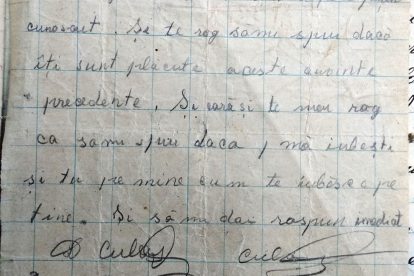 cunoscut. Și te rog sămi spui dacă
îți sunt plăcute aceste cuvinte
precedente. Și iarăși te mai rog
ca sămi spui daca, mă iubești
si tu pe mine cum te iubesc pe
tine. Și să mi dai raspun imediat